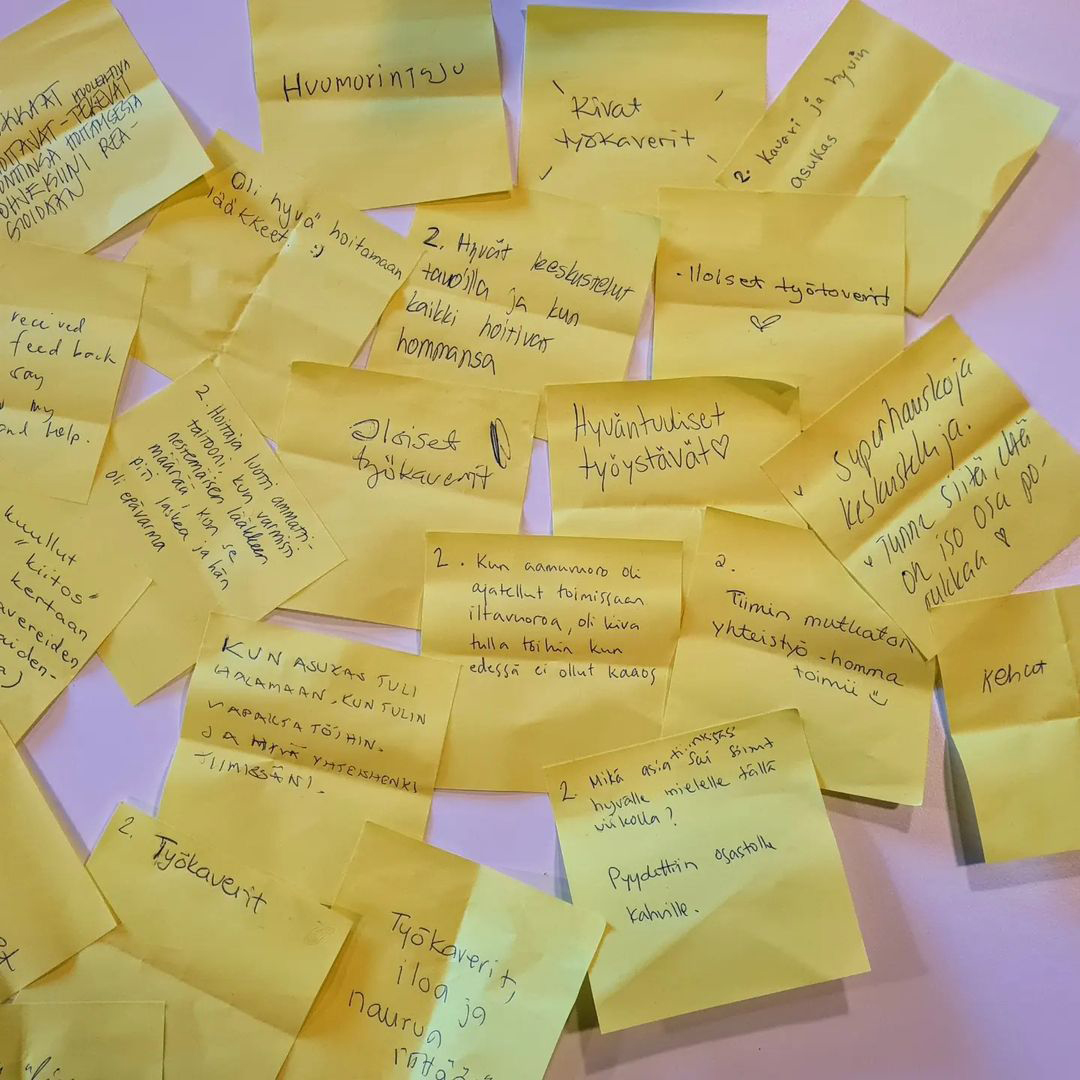 HUOLEHTIVA
HOITAMISESTA
Huumorintaju
Kivat
työkaverit
2. Kaveri ja hyvin
asukas
Oli hyvä hoitamaan
lääkkeet. :)
2. Hyvät keskustelut
ja kun
kaikki hoitivat
hommansa
· Iloiset työtoverit
♡
received
feed back
say
my
and help.
2. Hoitaja luotti ammatti-
taitooni, kun varmisti
nestemäisen lääkkeen
määrää, kun se
piti laskea ja hän
oli epävarma
Iloiset
työkaverit
Hyväntuuliset
työystävät♡
Superhauskoja
keskusteluja.
Tunne siitä, että
on iso osa po-
rukkaa ♡
kuullut
"kiitos"
kertaan
2. Kun aamuvuoro oli
ajatellut toimissaan
iltavuoroa, oli kiva
tulla töihin kun
edessä ei ollut kaaos
2.
Tiimin mutkaton
yhteistyö - homma
toimii :)
Kehut
KUN ASUKAS TULI
HALAMAAN, KUN TULIN
VAPAALTA TÖIHIN.
JA HYVÄ YHTEISHENKI
TIIMISSÄNI.
2. Mikä asia
sai sinut
hyvälle mielelle tällä
viikolla?
Pyydettiin osastolle
kahville.
2. Työkaverit
Työkaverit,
iloa ja
naurua